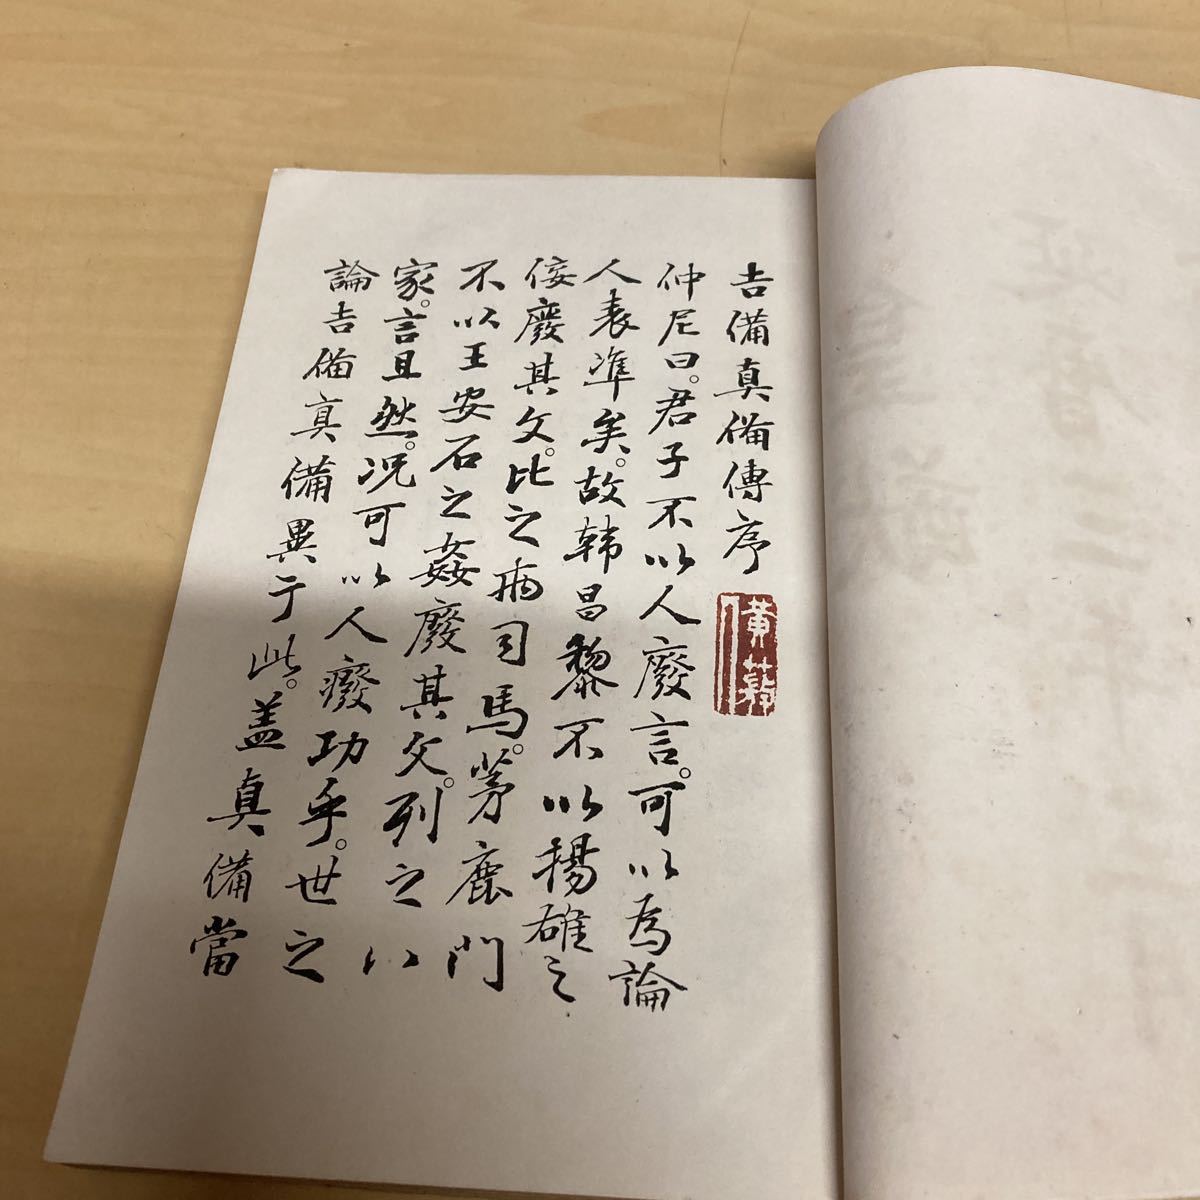 吉備真備傳序
仲尼曰。君子不以人廢言。可以為論
人表準矣。故韩昌黎不以揚雄之
佞廢其文。比之两司馬。茅鹿門
不以王安石之姦廢其文。列之八
家。言且然。况可以人癈功乎。世之
論吉備真備異于此。盖真備當